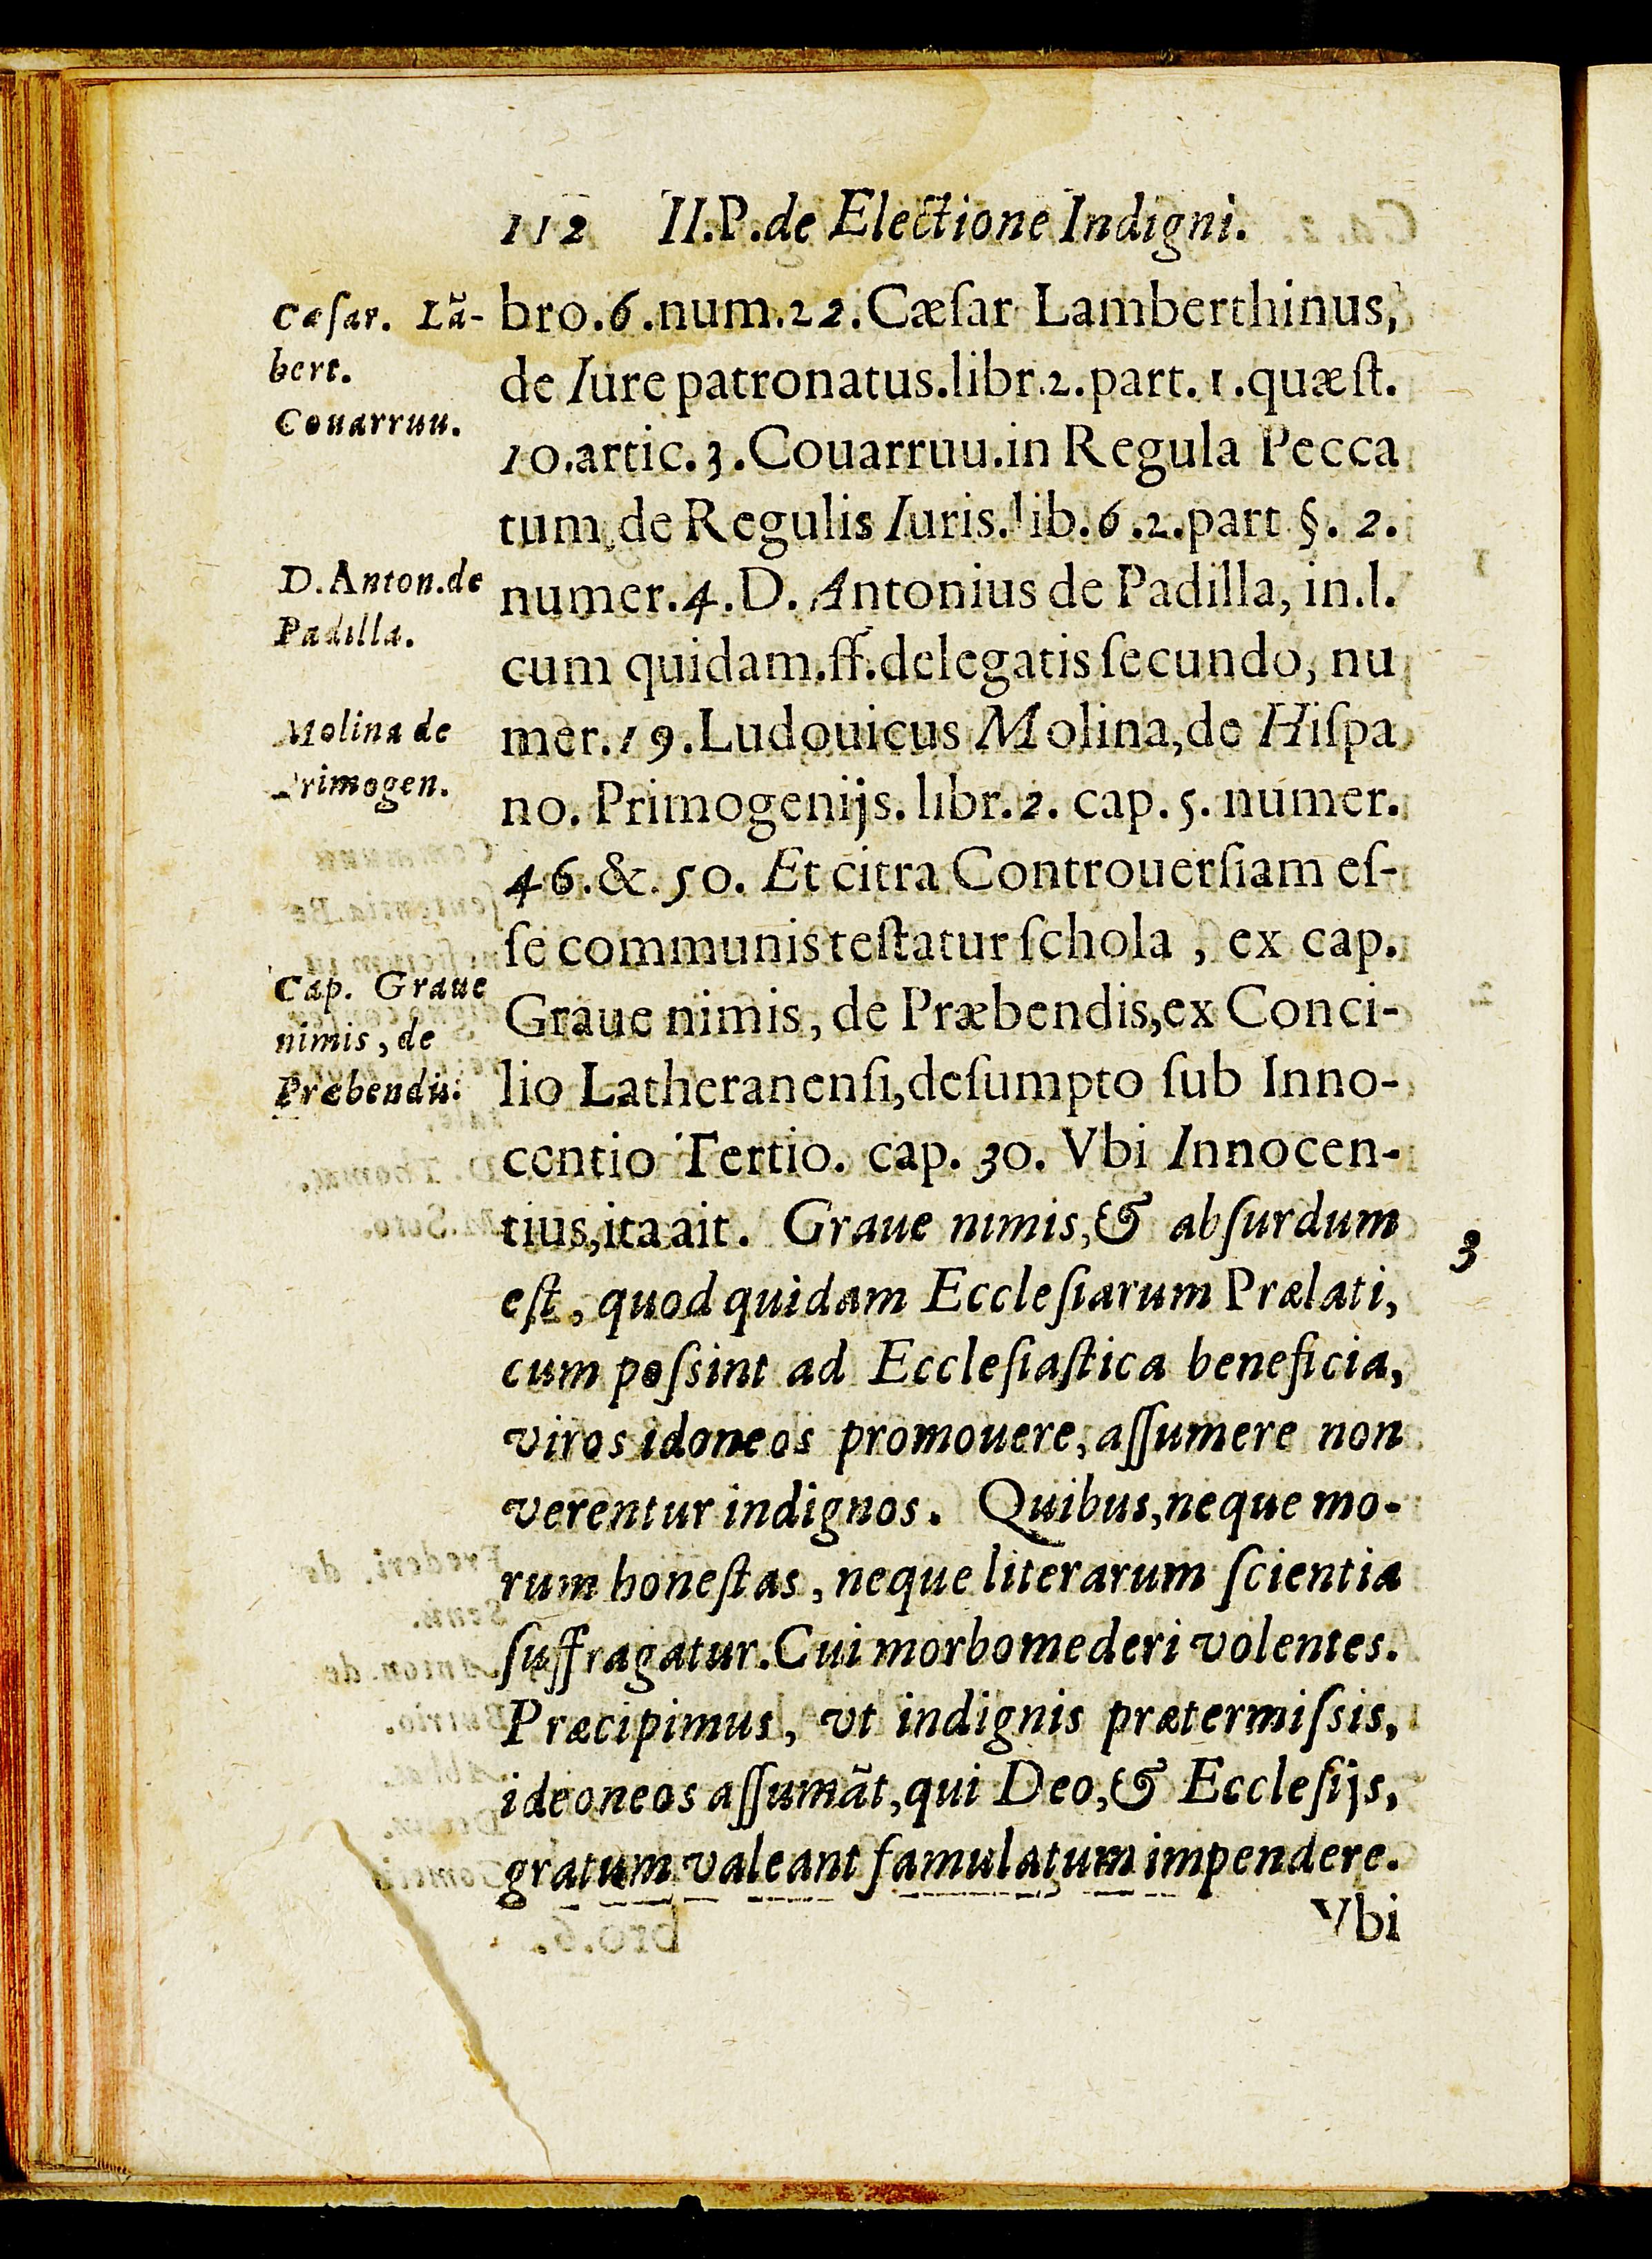 112 II.P.de Electione Indigni.
Cæſar. Lã-
bert.
Couarruu.
D.Anton.de
Padilla.
Molina de
Primogen.
Cap. Graue
nimis, de
Præbendis.
bro.6.num.22.Cæſar Lamberthinus,
de Iure patronatus.libr.2.part.1.quæſt.
10.artic.3.Couarruu.in Regula Pecca
tum de Regulis Iuris.lib.6.2.part §. 2.
numer.4.D. Antonius de Padilla, in.l.
cum quidam.ff.delegatis ſecundo, nu
mer.19.Ludouicus Molina,de Hiſpa
no. Primogenijs. libr.2. cap.5. numer.
46.&.50. Et citra Controuerſiam eſ-
ſe communis teſtatur ſchola , ex cap.
Graue nimis, de Præbendis,ex Conci-
lio Latheranenſi,deſumpto ſub Inno-
centio Tertio. cap. 30. Vbi Innocen-
tius,ita ait. Graue nimis,& abſurdum
eſt, quod quidam Eccleſiarum Prælati,
cum poſsint ad Eccleſiaſtica beneficia,
viros idoneos promouere, aſſumere non
verentur indignos. Quibus,neque mo-
rum honeſtas, neque literarum ſcientia
ſuffragatur.Cui morbo mederi volentes.
Præcipimus, vt indignis prætermiſsis,
ideoneos aſſumãt,qui Deo,& Eccleſijs,
gratum valeant famulatum impendere.
3
Vbi